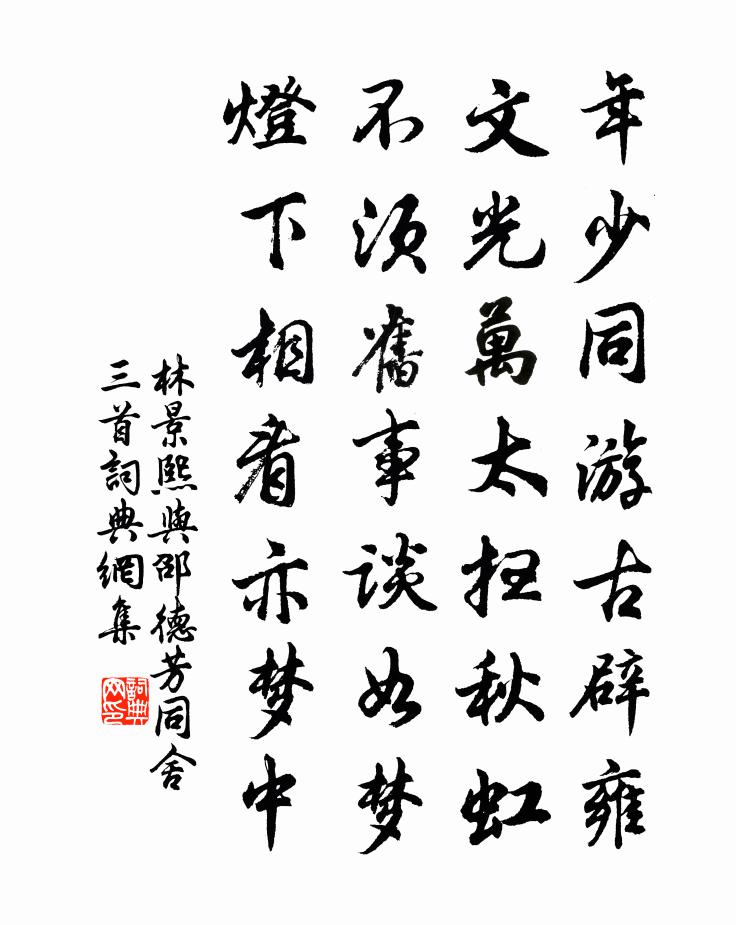 年少同游古辟雍
文光萬太抂秋虹
不須舊事談如梦
燈下相看亦梦中
林景熙與邵德芳同舍
三首詞典網集
詞典網印